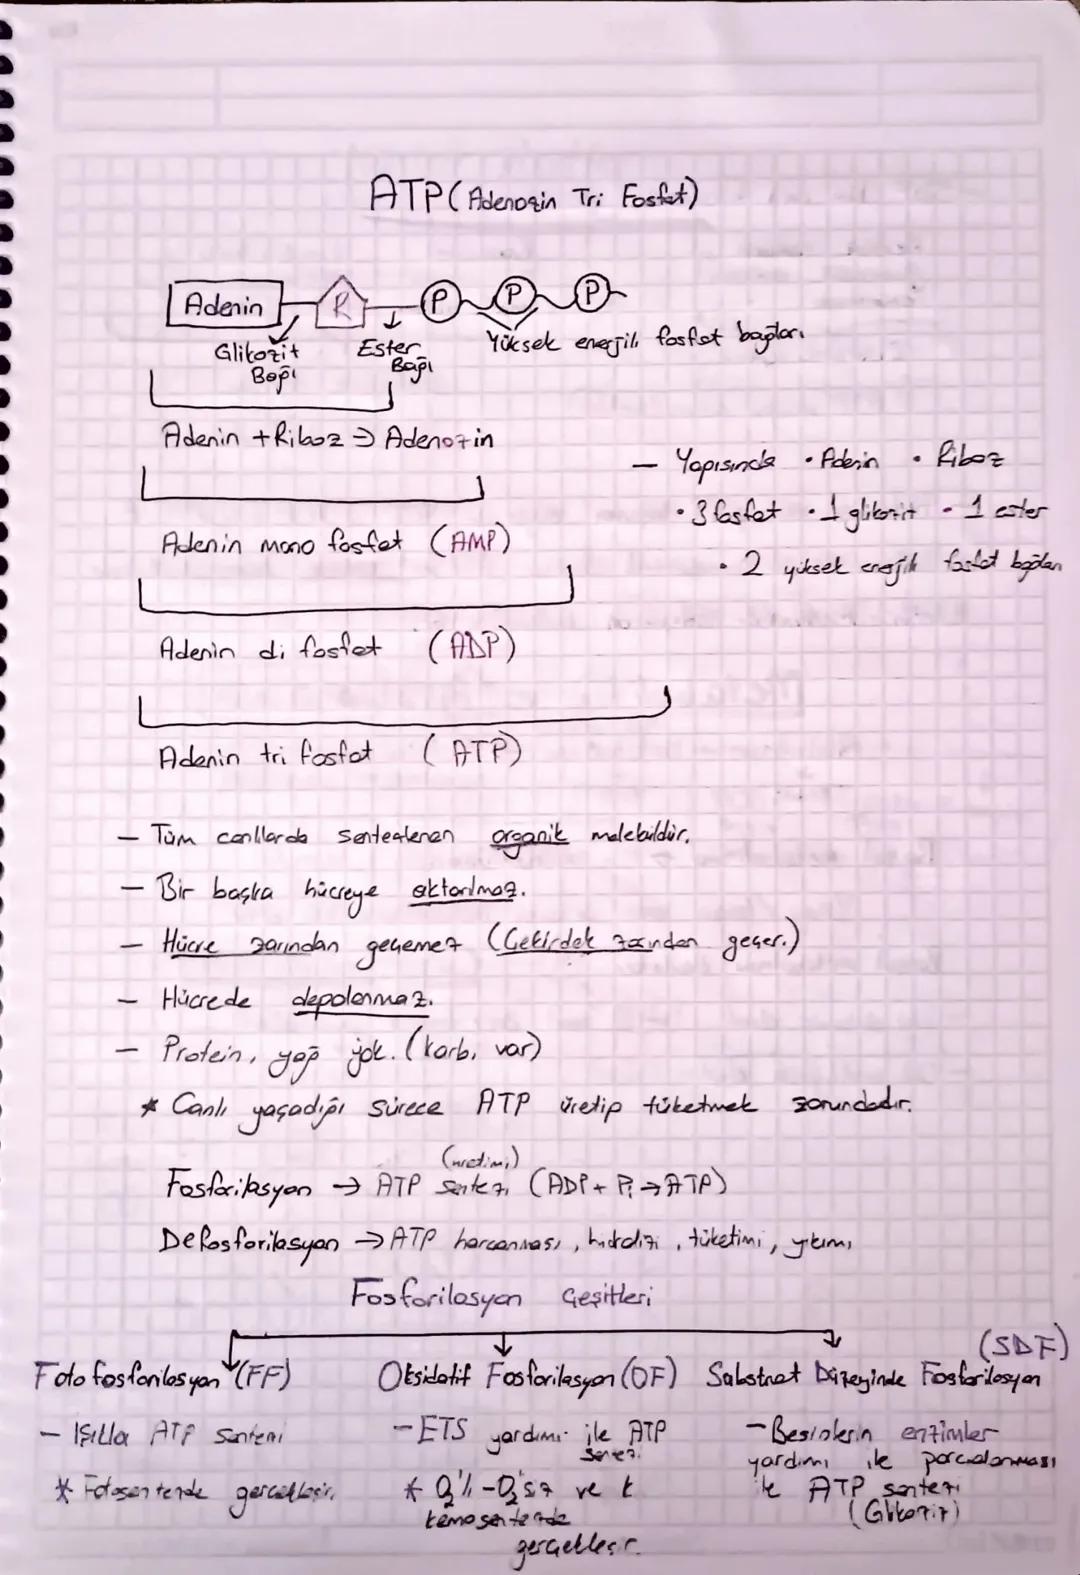 ATP (Adenozin Tri Fosfat)
Adenin R P P P
Glikozit Bağı
Ester Bağı
Yüksek enerjili fosfat bağları
Adenin + Riboz => Adenozin
— Yapısında • Adenin • Riboz
• 3 fosfat • 1 glikozit • 1 ester
• 2 yüksek enerjili fosfat bağları
Adenin mono fosfat (AMP)
Adenin di fosfat (ADP)
Adenin tri fosfat (ATP)
— Tüm canlılarda sentezlenen organik moleküldür.
— Bir başka hücreye aktarılmaz.
— Hücre zarından geçemez (Çekirdek zarından geçer.)
— Hücrede depolanmaz.
— Protein, yağ yok. (karb. var)
* Canlı yaşadığı sürece ATP üretip tüketmek zorundadır.
(üretimi)
Fosforilasyon → ATP sentezi (ADP + Pi → ATP)
Defosforilasyon → ATP harcanması, hidrolizi, tüketimi, yıkımı
Fosforilasyon Çeşitleri
Foto fosforilasyon (FF)
— Işıkla ATP sentezi
* Fotosentezde gerçekleşir.
Oksidatif Fosforilasyon (OF)
— ETS yardımı ile ATP
sentezi
* O₂'li - O₂'siz ve k
kemosentezde
gerçekleşir.
(SDF)
Substrat Düzeyinde Fosforilasyon
— Besinlerin enzimler
yardımı ile parçalanması
ile ATP sentezi
(Glikoliz)